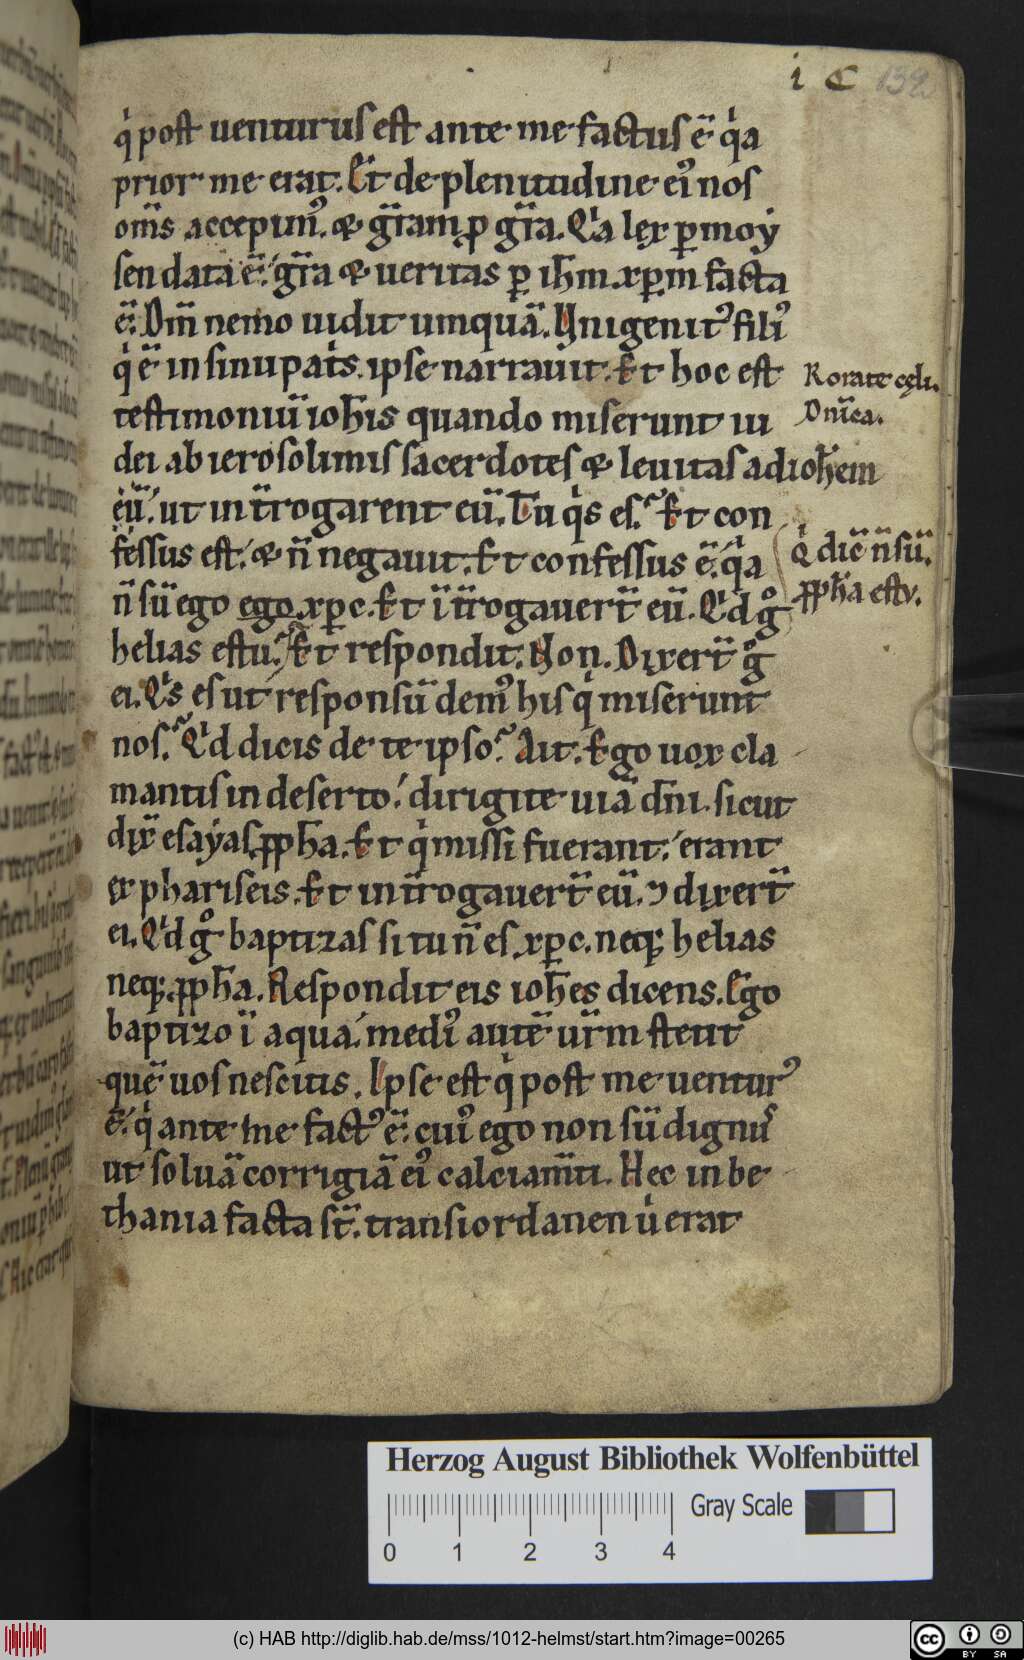 i C 132
q̇ post uenturus est ante me factus ē q̇a
prior me erat. Et de plenitudine ei᾿ nos
om̄s accepim᾿. & gr̄am p gr̄a. Q̇a lex ꝑ moẏ
sen data ē. gr̄a & ueritas ꝑ ih̄m xp̄m facta
ē. Dm̄ nemo uidit umquā. Vnigenit᾿ fili᾿
q̇ ē in sinu pat̄s. ipse narrauit. Et hoc est
Rorate cęli.
Dn̄ica.
testimoniū ioh̄is quando miserunt iu
dei ab ierosolimis sacerdotes & leuitas ad ioh̄em
eū. ut int̄rogarent eū. Tu q̇s es. Et con
fessus est. & n̄ negauit. Et confessus ē. q̇a
Q̇ dic̄ n̄ sū.
ꝓph̄a estu.
n̄ sū ego ego xp̄c. Et īt̄rogauert̄ eū. Q̇d gͦ
helias estu. Et respondit. Non. Dixert̄ gͦ
ei. Q̇s es ut responsū dem᾿ his q̇ miserunt
nos. Q̇d dicis de te ipso. Ait. Ego uox cla
mantis in deserto. dirigite uiā dn̄i. sicut
dix̄ esaẏas ꝓph̄a. Et q̇ missi fuerant. erant
ex phariseis. Et int̄rogauert̄ eū. ⁊ dixert̄
ei. Q̇d gͦ baptizas si tu n̄ es xp̄c. neq; helias
neq; ꝓph̄a. Respondit eis ioh̄es dicens. Ego
baptizo ī aqua. medi᾿ autē ur̄m stetit
quē uos nescitis. Ipse est q̇ post me uentur᾿
ē. q̇ ante me fact᾿ ē. cui᾿ ego non sū dignus
ut soluā corrigiā ei᾿ calciam̄ti. Hec in be
thania facta st̄. trans iordanen u̇ erat
Herzog August Bibliothek Wolfenbüttel
Gray Scale
0 1 2 3 4
(c) HAB http://diglib.hab.de/mss/1012-helmst/start.htm?image=00265
cc BY SA